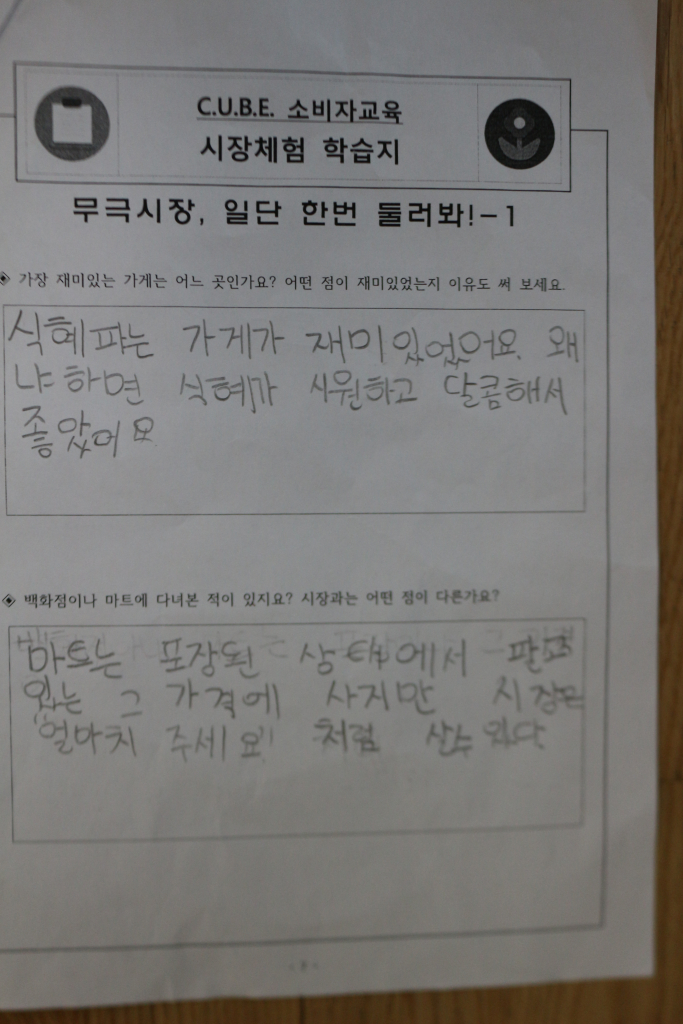 C.U.B.E. 소비자교육
시장체험 학습지
무극시장, 일단 한번 둘러봐!-1
◈ 가장 재미있는 가게는 어느 곳인가요? 어떤 점이 재미있었는지 이유도 써 보세요.
식혜파는 가게가 재미있었어요. 왜
냐하면 식혜가 시원하고 달콤해서
좋았어요
◈ 백화점이나 마트에 다녀본 적이 있지요? 시장과는 어떤 점이 다른가요?
마트는 포장된 상태에서 팔고
있는 그 가격에 사지만 시장은
"얼마치 주세요" 처럼 살수 있다